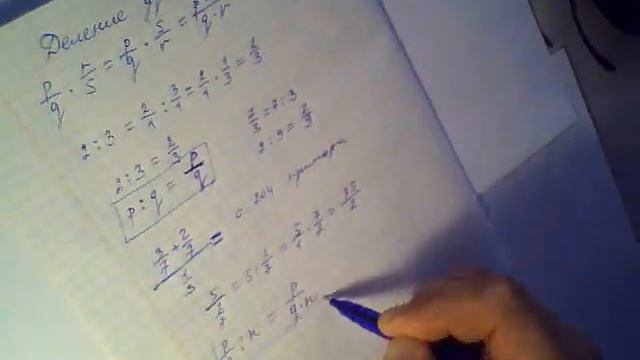 Деление
p/q : r/s = p/q · s/r = p·s/q·r
2:3 = 2/1 : 3/1 = 2/1 · 1/3 = 2/3
2:3 = 2/3
7/3 = 7:3
2:9 = 2/9
p:q = p/q
с 204 примеры
(3/7 + 2/7)/(1/3) =
5/(2/7) = 5 : 2/7 = 5/1 · 7/2 = 35/2
p/q : n = p/q·n